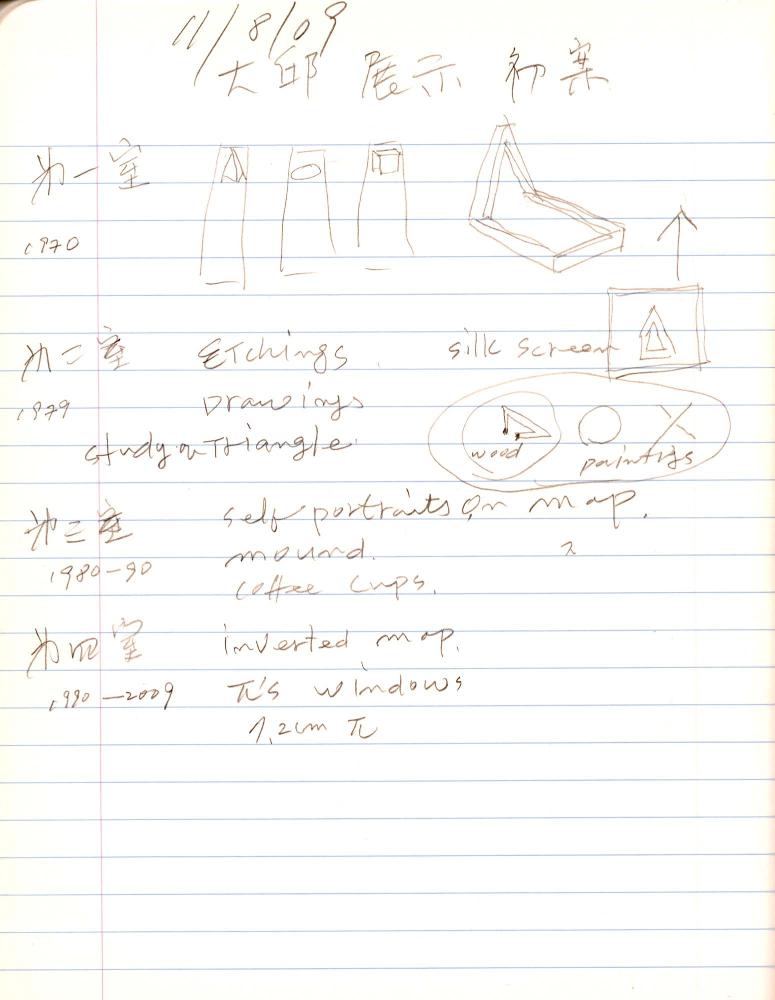 11/8/09
大邱 展示 初案
第一室
1970
第二室 Etchings. silk screen
1979 Drawings
study on Triangle wood paintigs
第三室 self portraits on map.
1980-90 mound.
coffee cups.
第四室 inverted map.
1990-2009 π's windows
1,2cm π